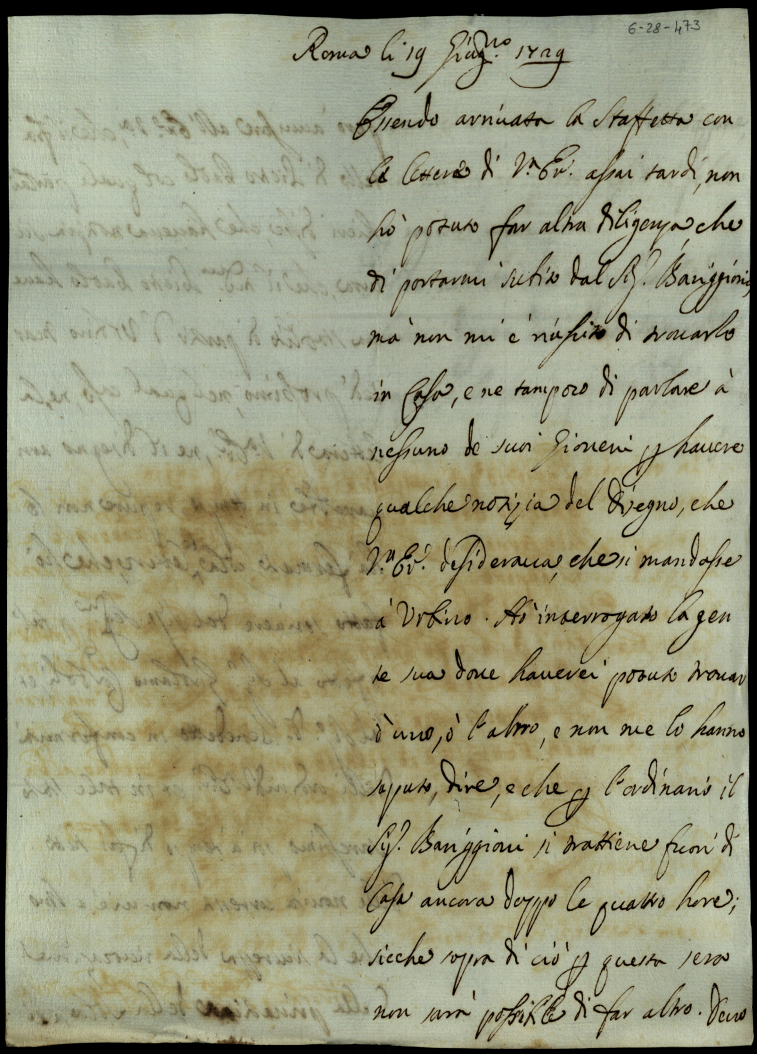 6-28-473
Roma li 19 Giug.no 1729
Essendo arrivata la Staffetta con
le lettere di V.a Ec.a assai tardi, non
hò potuto far altra diligenza, che
di portarmi subito dal Sig.r Barigioni,
mà non mi è riuscito di trovarlo
in Casa, e ne tampoco di parlare à
nessuno de suoi Giovani p havere
qualche notizia del disegno, che
V.a Ec.a desiderava, che si mandasse
à Urbino. Hò interrogato la gen
te sua dove haverei potuto trovar
ò l'uno, ò l'altro, e non me lo hanno
saputo dire, e che p l'ordinario il
Sig.r Barigioni si trattiene fuori di
Casa ancora doppo le quattro hore;
sicche sopra di ciò p questa sera
non sarà possibile di far altro. Devo